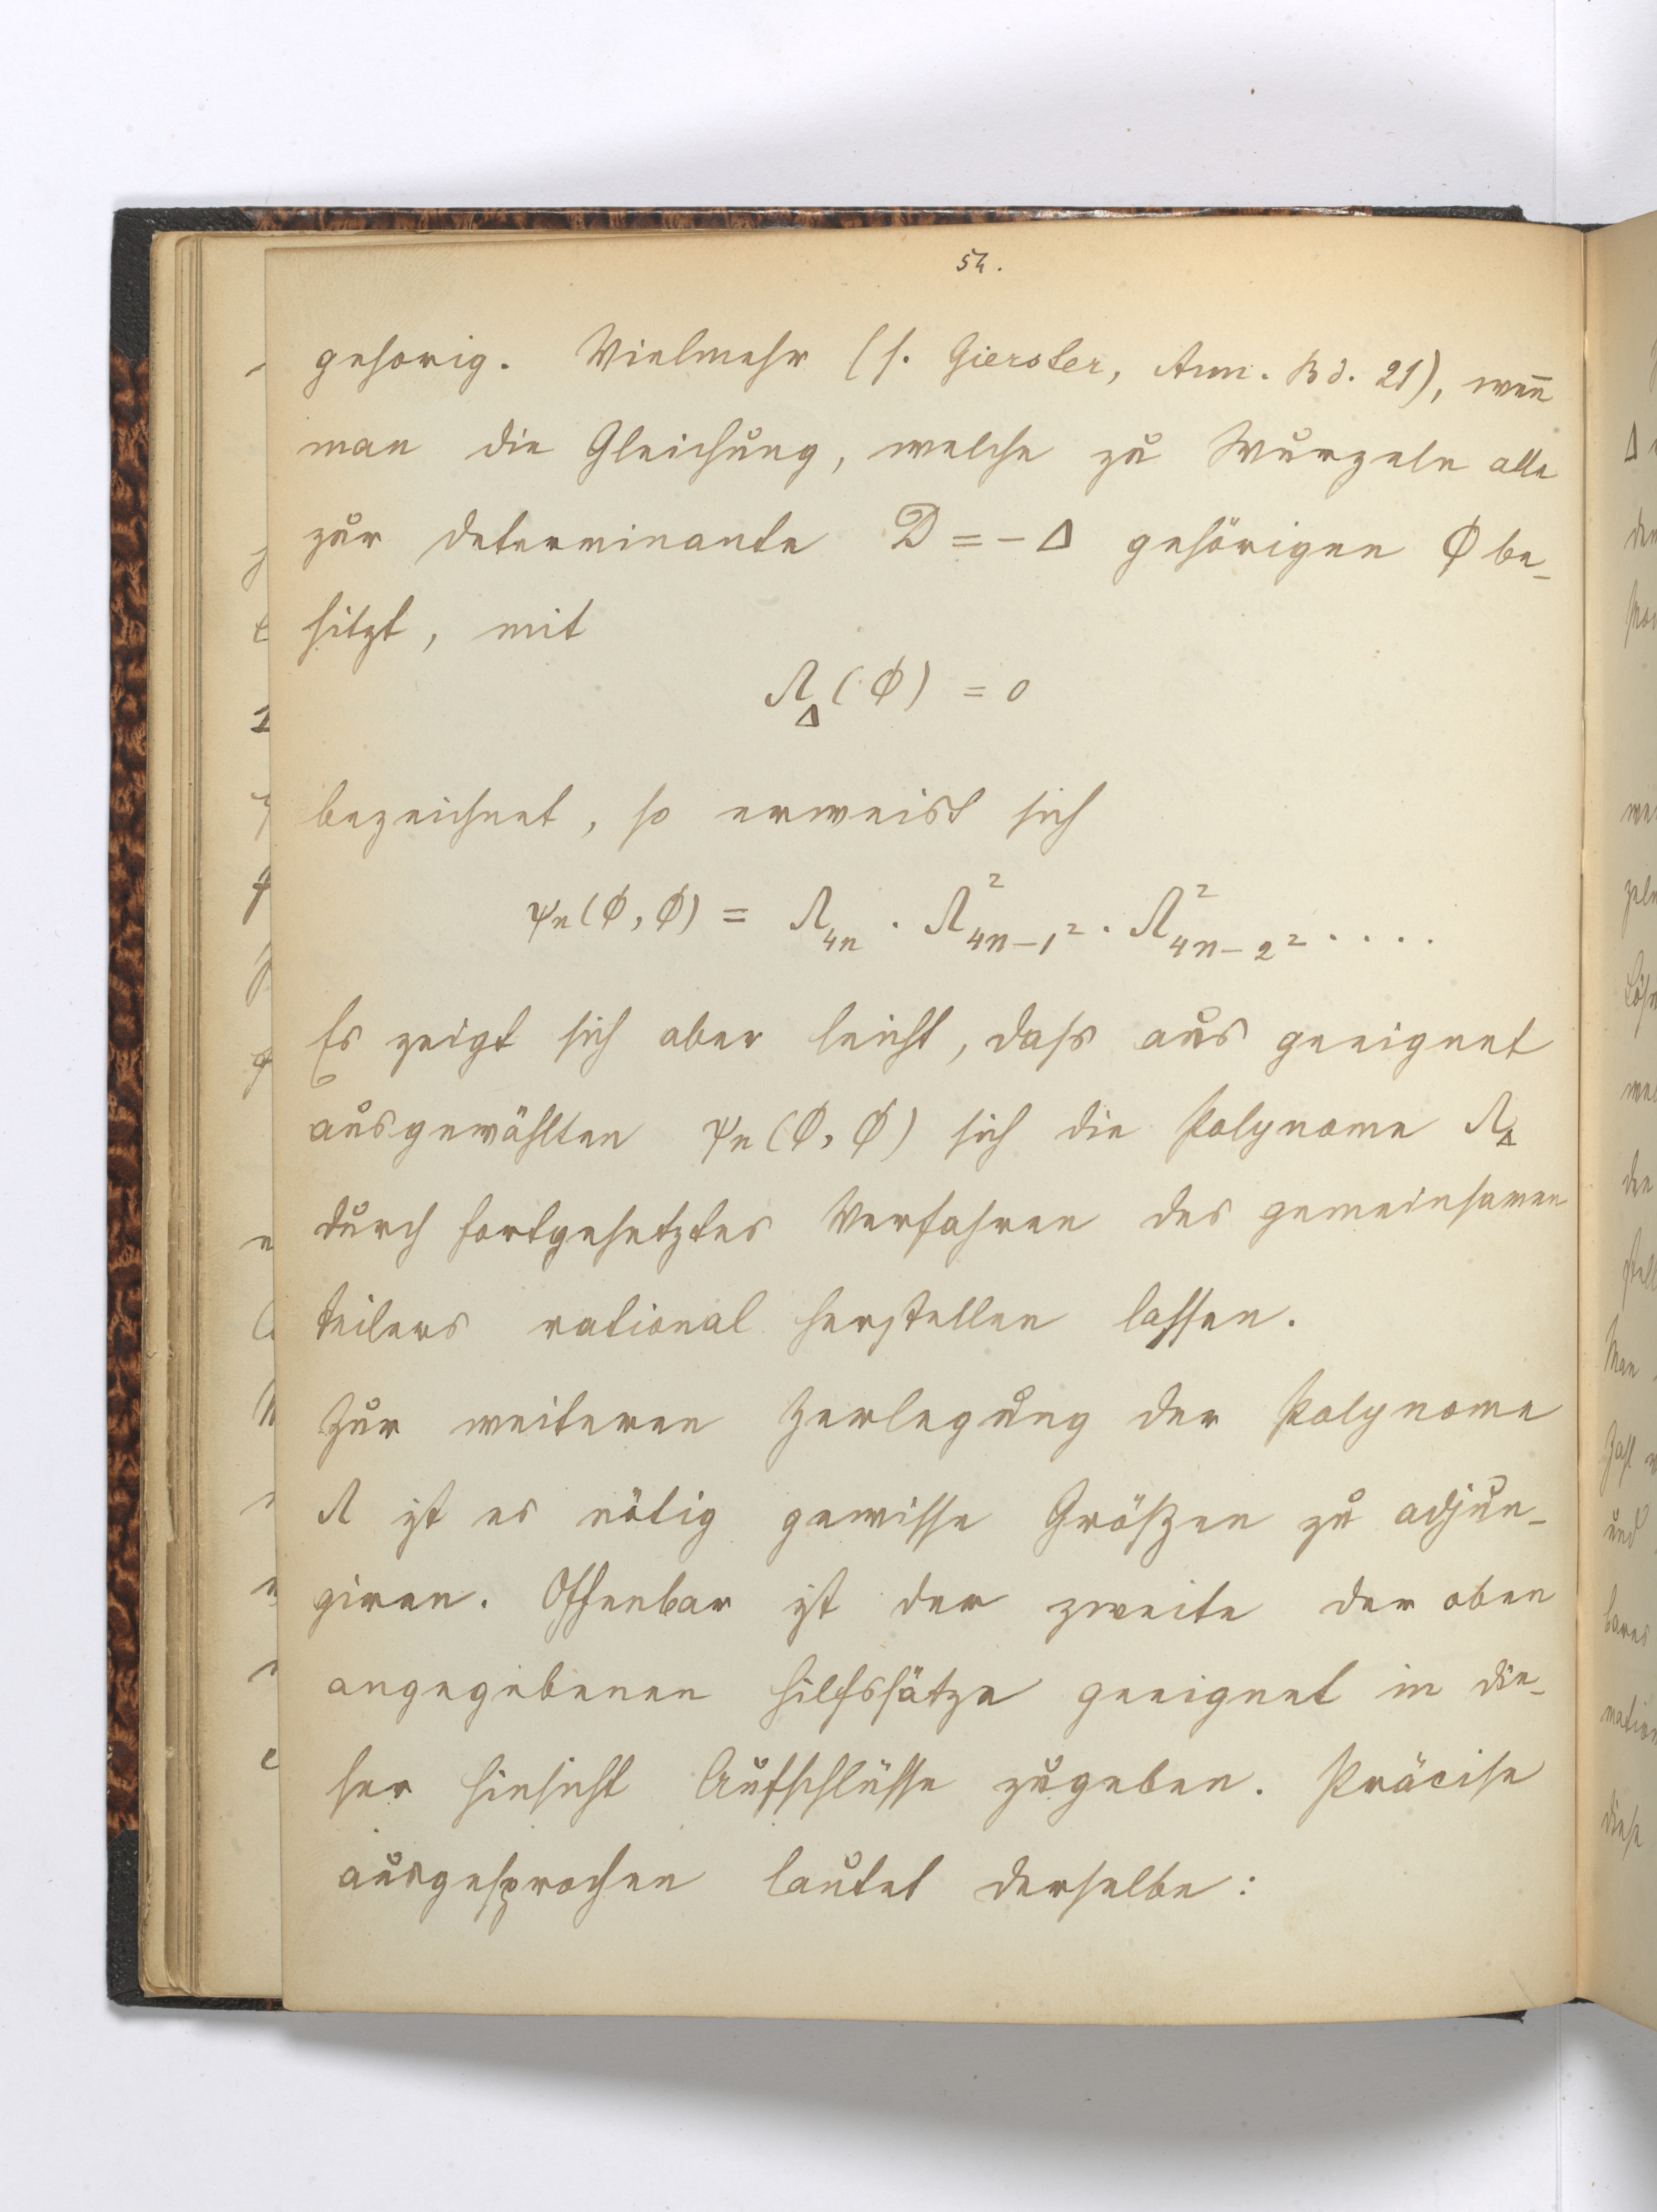 54.
gehörig. Vielmehr (s. Gierster, Ann. Bd. 21), wen̄
man die Gleichung, welche zu Wurzeln alle
zur Determinante D = -Δ gehörigen Φ be-
sitzt, mit
Λ_Δ(Φ) = 0
bezeichnet, so erweist sich
ψ_n(Φ, Φ) = Λ_{4n} · Λ²_{4n-1²} · Λ²_{4n-2²} ....
Es zeigt sich aber leicht, daſs aus geeignet
ausgewählten ψ_n(Φ, Φ) sich die Polynome Λ_Δ
durch fortgesetztes Verfahren des gemeinsamen
Teilers rational herstellen lassen.
Zur weiteren Zerlegung der Polynome
Λ ist es nötig gewisse Größen zu adjun-
giren. Offenbar ist der zweite der oben
angegebenen Hilfssätze geeignet in die-
ser Hinsicht Aufschlüsse zugeben. Präcise
ausgesprochen lautet derselbe: